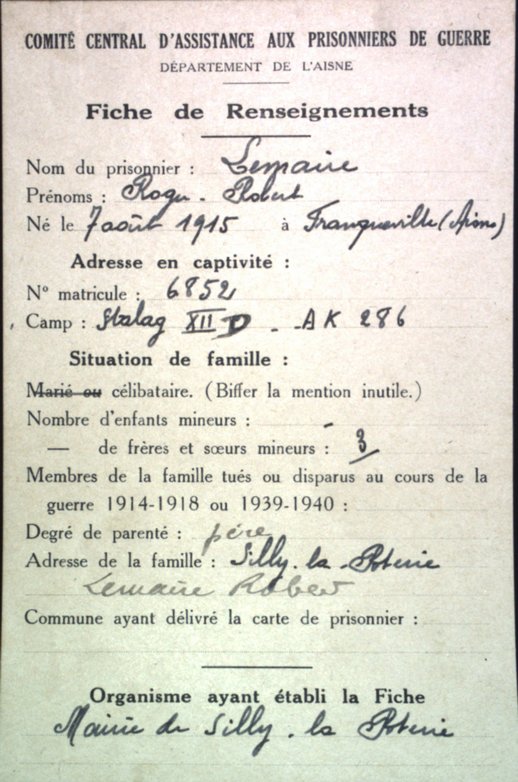 COMITÉ CENTRAL D'ASSISTANCE AUX PRISONNIERS DE GUERRE
DÉPARTEMENT DE L'AISNE
Fiche de Renseignements
Nom du prisonnier : Lemaire
Prénoms : Roger - Robert
Né le 7 août 1915 à Franqueville (Aisne)
Adresse en captivité :
N° matricule : 6852
Camp : Stalag XII D - AK 286
Situation de famille :
Marié ou célibataire. (Biffer la mention inutile.)
Nombre d'enfants mineurs : -
— de frères et sœurs mineurs : 3
Membres de la famille tués ou disparus au cours de la
guerre 1914-1918 ou 1939-1940 :
Degré de parenté : père
Adresse de la famille : Silly-la-Poterie
Lemaire Robert
Commune ayant délivré la carte de prisonnier :
Organisme ayant établi la Fiche
Mairie de Silly-la Poterie